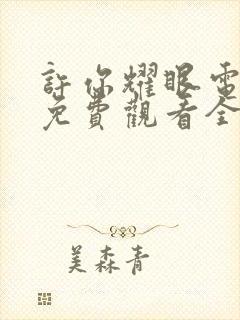 許你耀眼電
免費觀看全
美森青